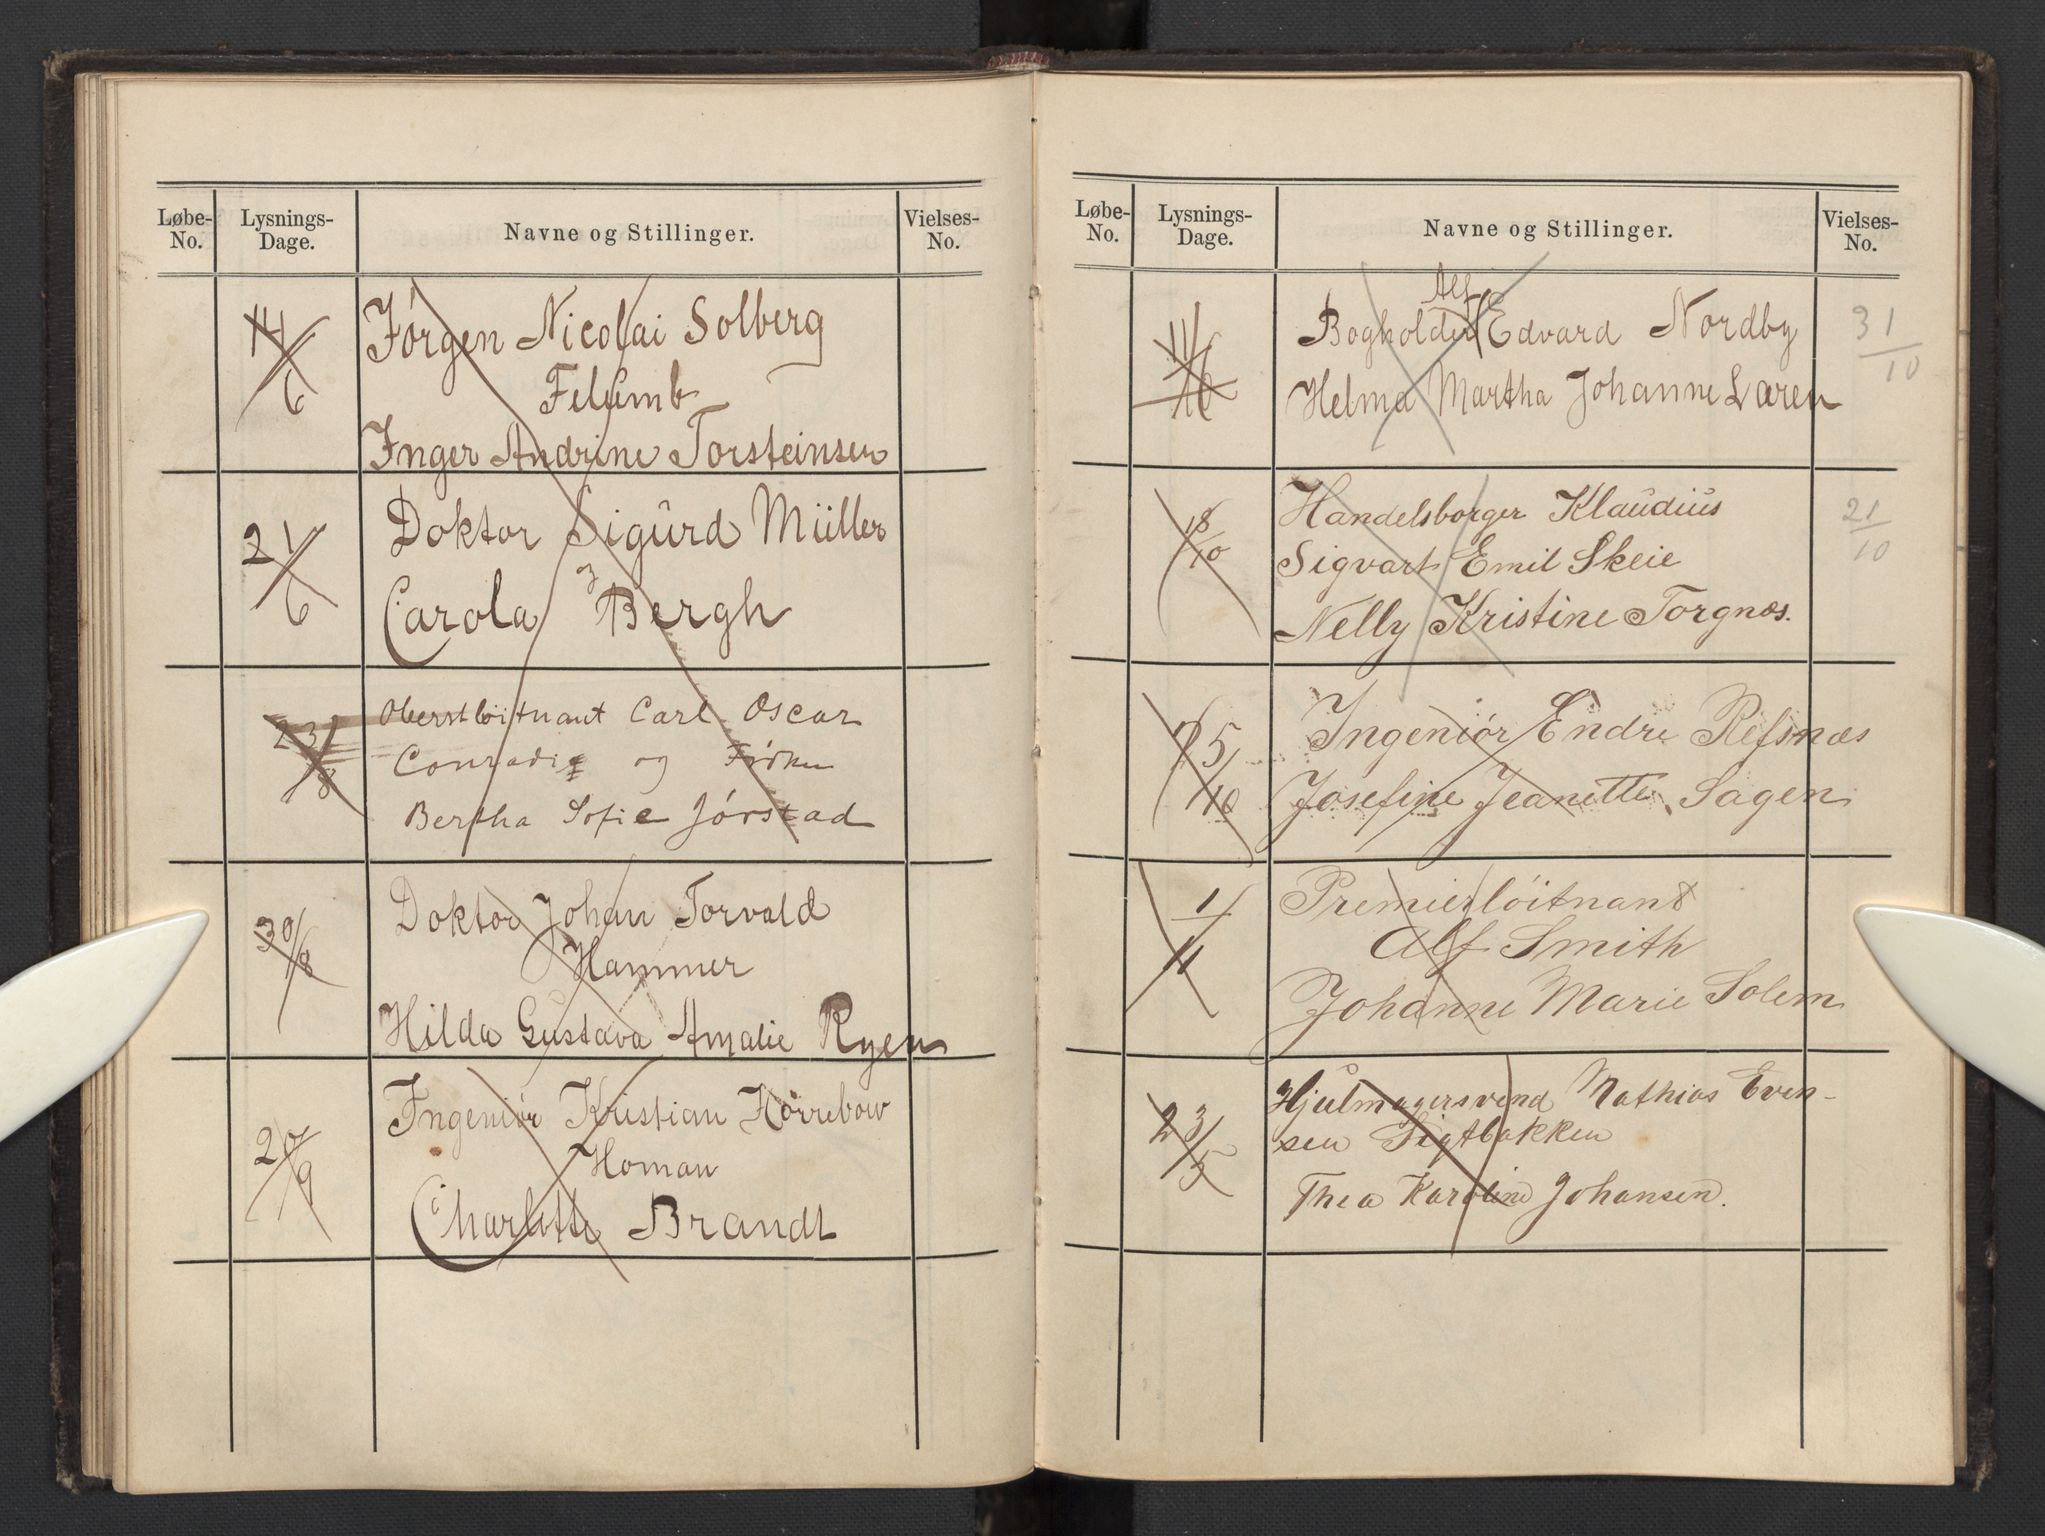 Løbe-No. Lysnings-Dage. Navne og Stillinger. Vielses-No.
14/6 Jørgen Nicolai Solberg
Felumb
Inger Andrine Torsteinsen
21/6 Doktor Sigurd Müller
og
Carola Bergh
23/8 Oberstløitnant Carl Oscar
Conradi og Frøken
Bertha Sofie Jørstad
30/8 Doktor Johan Torvald
Hammer
Hilda Gustava Amalie Ryen
20/9 Ingeniør Kristian Horrebow
Homan
Charlotte Brandt
Løbe-No. Lysnings-Dage. Navne og Stillinger. Vielses-No.
Alf
11/10 Bogholder Edvard Nordby 31/10
Helma Martha Johanne Laren
18/10 Handelsborger Klaudius 21/10
Sigvart Emil Skeie
Nelly Kristine Torgnæs.
25/10 Ingeniør Endre Refsnæs
Josefine Jeanette Sagen
1/11 Premierløitnant
Alf Smith
Johanne Marie Solem
23/5 Hjulmagersvend Mathias Even-
sen Sigtbakken
Thea Karoline Johansen.